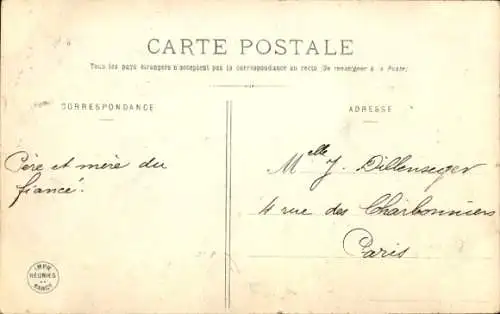 CARTE POSTALE
Tous les pays étrangers n'acceptent pas la correspondance au recto (Se renseigner à la Poste)
CORRESPONDANCE
ADRESSE
Père et mère du
fiancé.
Melle J. Dillenseger
4 rue des Charbonniers
Paris
IMPR
RÉUNIES
DE
NANCY